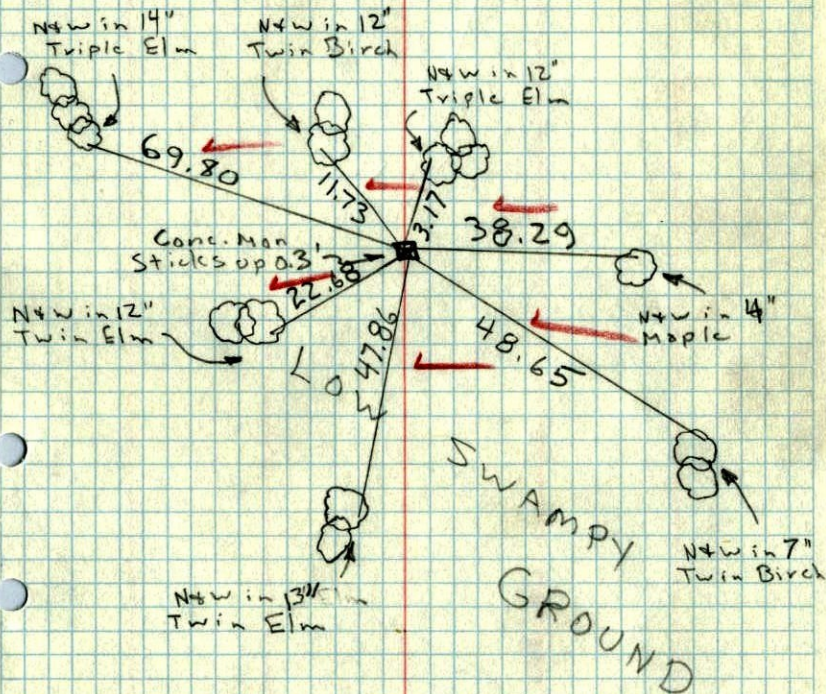 N&W in 14"
Triple Elm
N&W in 12"
Twin Birch
N&W in 12"
Triple Elm
69.80
11.73
3.17
38.29
Conc. Mon
Sticks up 0.3'
22.68
N&W in 12"
Twin Elm
N&W in 4"
Maple
47.86
48.65
LOW
SWAMPY
GROUND
N&W in 7"
Twin Birch
N&W in 13"
Twin Elm